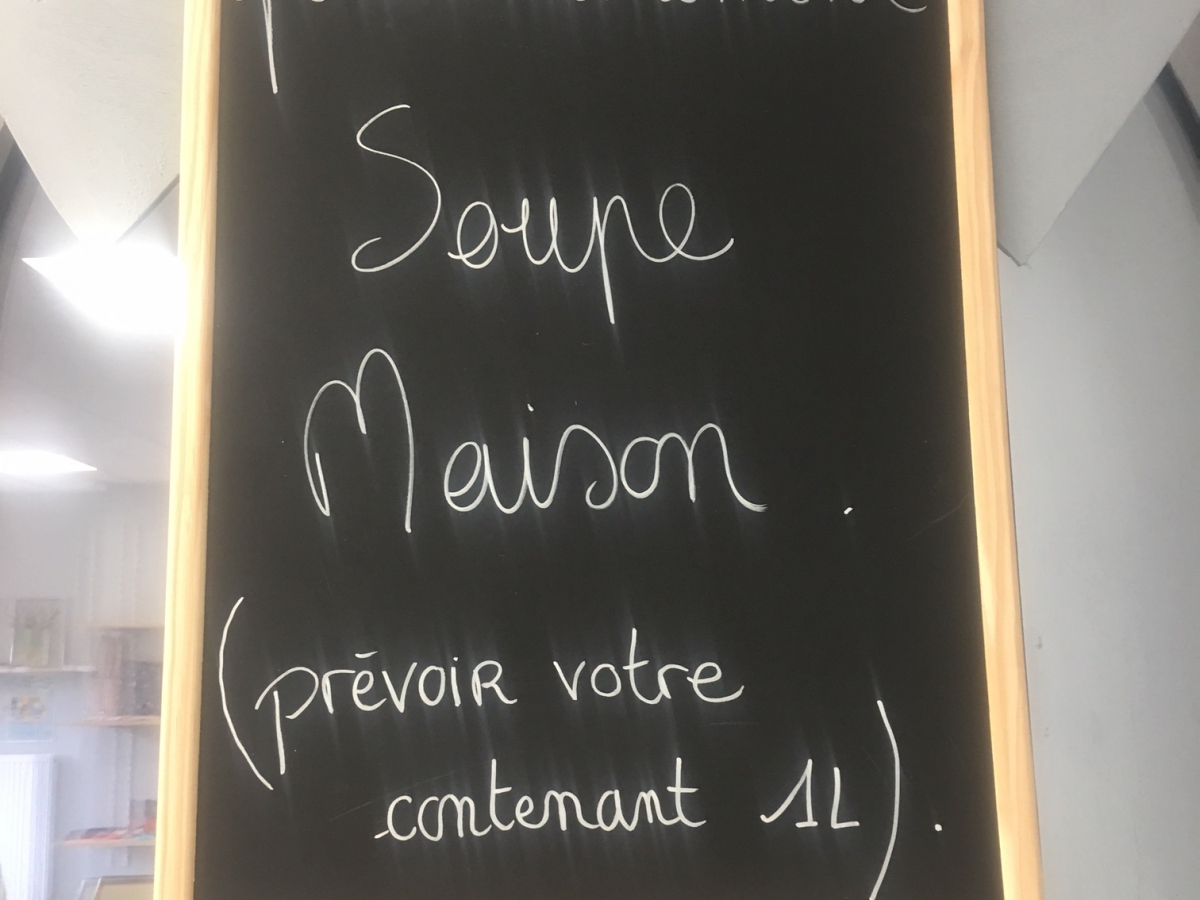 Soupe
Maison.
(prévoir votre
contenant 1L).